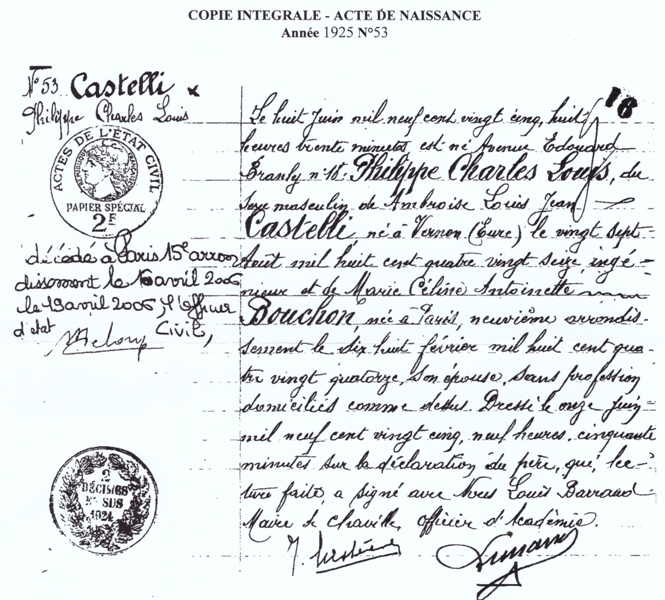 COPIE INTEGRALE - ACTE DE NAISSANCE
Année 1925 N°53
N°53 Castelli
Philippe Charles Louis
ACTES DE L'ÉTAT CIVIL
PAPIER SPÉCIAL
2F
décédé à Paris 15e arron
dissement le 16 avril 2006
le 19 avril 2006, l'Officier
d'état Civil,
2
DÉCIMES
EN SUS
1924
18
Le huit Juin mil neuf cent vingt cinq, huit
heures trente minutes est né Avenue Edouard
Branly n° 18. Philippe Charles Louis, du
sexe masculin de Ambroise Louis Jean
Castelli né à Vernon (Eure) le vingt sept
Août mil huit cent quatre vingt seize, ingé-
nieur et de Marie Céline Antoinette
Bouchon, née à Paris, neuvième arrondis-
sement le dix huit février mil huit cent qua-
tre vingt quatorze, son épouse, sans profession
domiciliés comme dessus. Dressé le onze Juin
mil neuf cent vingt cinq, neuf heures, cinquante
minutes sur la déclaration du père, qui, lec-
ture faite, a signé avec Nous Louis Barraud
Maire de Chaville Officier d'Académie.